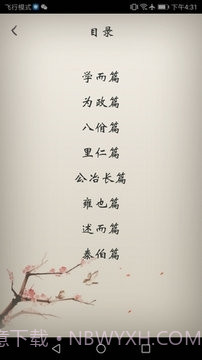 飞行模式 下午4:31
目录
学而篇
为政篇
八佾篇
里仁篇
公冶长篇
雍也篇
述而篇
泰伯篇
意下载·NBWYXH.COM